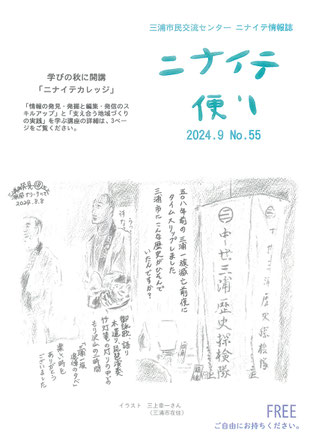 三浦市民交流センター ニナイテ情報誌
ニナイテ
便り
2024.9 No.55
学びの秋に開講
「ニナイテカレッジ」
「情報の発見・発掘と編集・発信のス
キルアップ」と「支え合う地域づくり
の実践」を学ぶ講座の詳細は、3ペー
ジをご覧ください。
2024.8.8
五〇八年前の三浦一族滅亡前後に
タイムスリップしました
三浦市にこんな歴史がひそんで
いたんですか?
御詠歌・語り
竹灯篭の灯りの中の
暑い時を
ありがとう
ございました
中世三浦歴史探検隊
中世三浦歴史探検隊
イラスト 三上幸一さん
(三浦市在住)
FREE
ご自由にお持ちください。